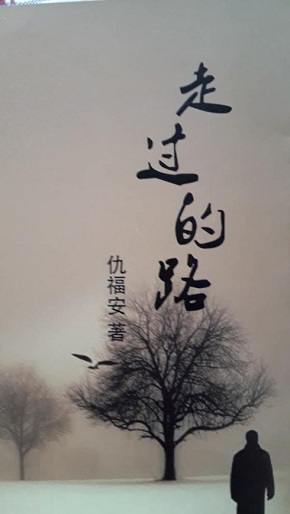 走过的路
仇福安 著